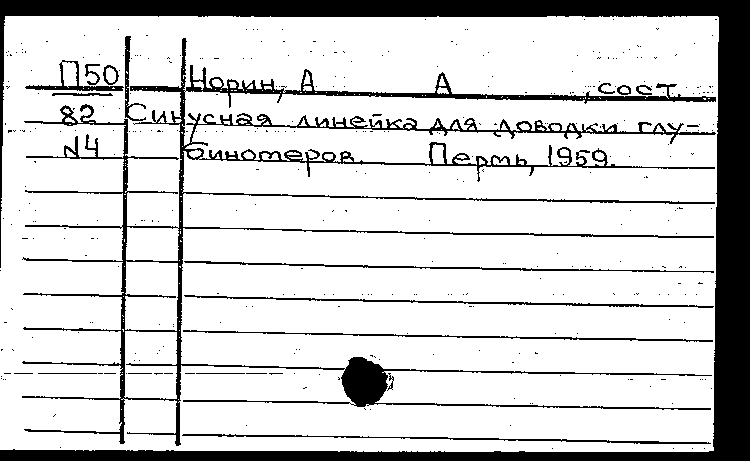 П50 Норин, А А , сост.
82 Синусная линейка для доводки глу-
N4 биномеров. Пермь, 1959.